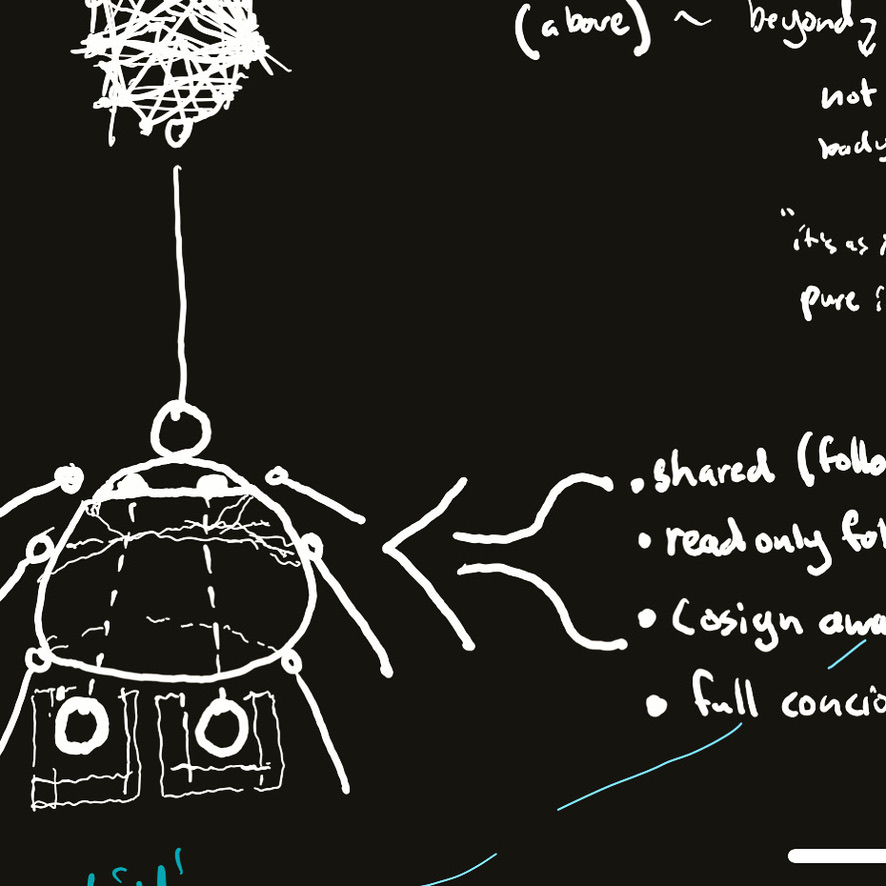 (above) ~ beyond
not
body
"it's as
pure i
• shared (follo
• read only fol
• Cosign awa
• full concio